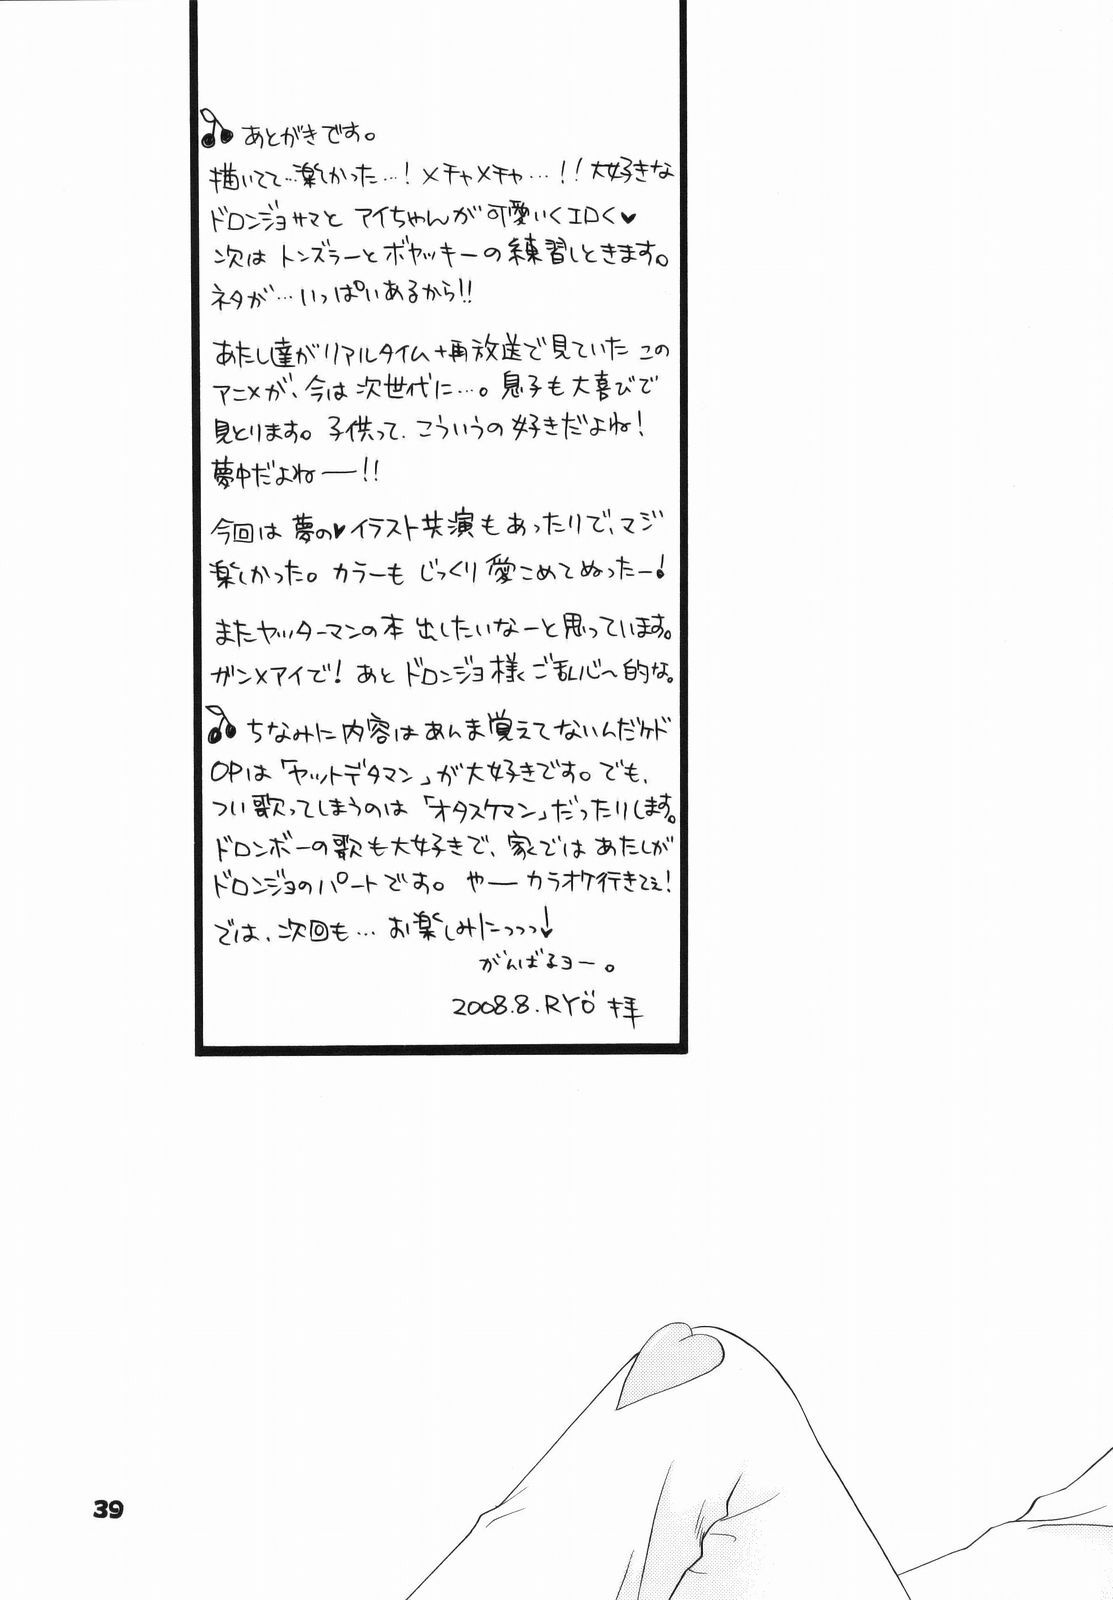 あとがきです。
描いてて…楽しかった…！メチャメチャ…！！大好きな
ドロンジョサマと アイちゃんが可愛いくエロく♥
次は トンズラーとボヤッキーの練習しときます。
ネタが…いっぱいあるから!!
あたし達がリアルタイム+再放送で見ていた この
アニメが、今は次世代に…。息子も大喜びで
見とります。子供って、こういうの好きだよね！
夢中だよねー!!
今回は 夢の♥イラスト共演もあったりで、マジ
楽しかった。カラーも じっくり愛こめてぬったー！
またヤッターマンの本 出したいなーと思っています。
ガン×アイで！あと ドロンジョ様ご乱心〜的な。
ちなみに内容はあんま覚えてないんだケド
OPは「ヤットデタマン」が大好きです。でも、
つい歌ってしまうのは「オタスケマン」だったりします。
ドロンボーの歌も大好きで、家では あたしが
ドロンジョのパートです。やー カラオケ行きてぇ！
では、次回も…お楽しみにっっっ！
がんばるヨー。
2008.8.RYÖ 拝
39